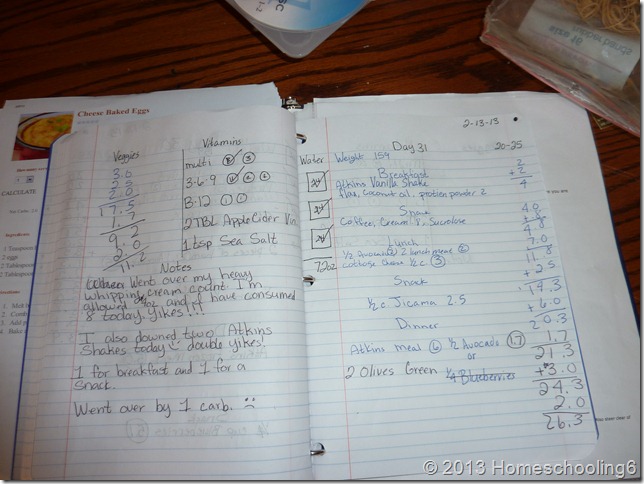 Cheese Baked Eggs
CALCULATE
Veggies
3.0
2.5
2.0
17.5
1.7
9.2
2.0
11.2
Vitamins
multi
3·6·9
B-12
2 TBL Apple Cider Vin
1 tsp Sea Salt
Notes
Went over my heavy
whipping cream count. I'm
allowed and I have consumed
8 today. Yikes!!!
I also downed two Atkins
Shakes today double yikes!
1 for breakfast and 1 for a
Snack.
Went over by 1 carb.
2-13-13
Day 31
20-25
Water
24
24
24
72oz
Weight 159
Breakfast
Atkins Vanilla Shake
flax, Coconut oil, protien powder 2
Snack
Coffee, Cream, Sucralose
Lunch
1/2 Avocado 2 lunch meat
cottage cheese 1/2 c. 3
Snack
1/2 c. Jicama 2.5
Dinner
Atkins meal 6 1/2 Avocado 1.7
or
2 Olives Green 1/4 Blueberries
2
+ 2
4
4.0
4.8
7.0
11.8
+ 2.5
14.3
+ 6.0
20.3
1.7
21.3
+3.0
24.3
2.0
26.3
© 2013 Homeschooling6